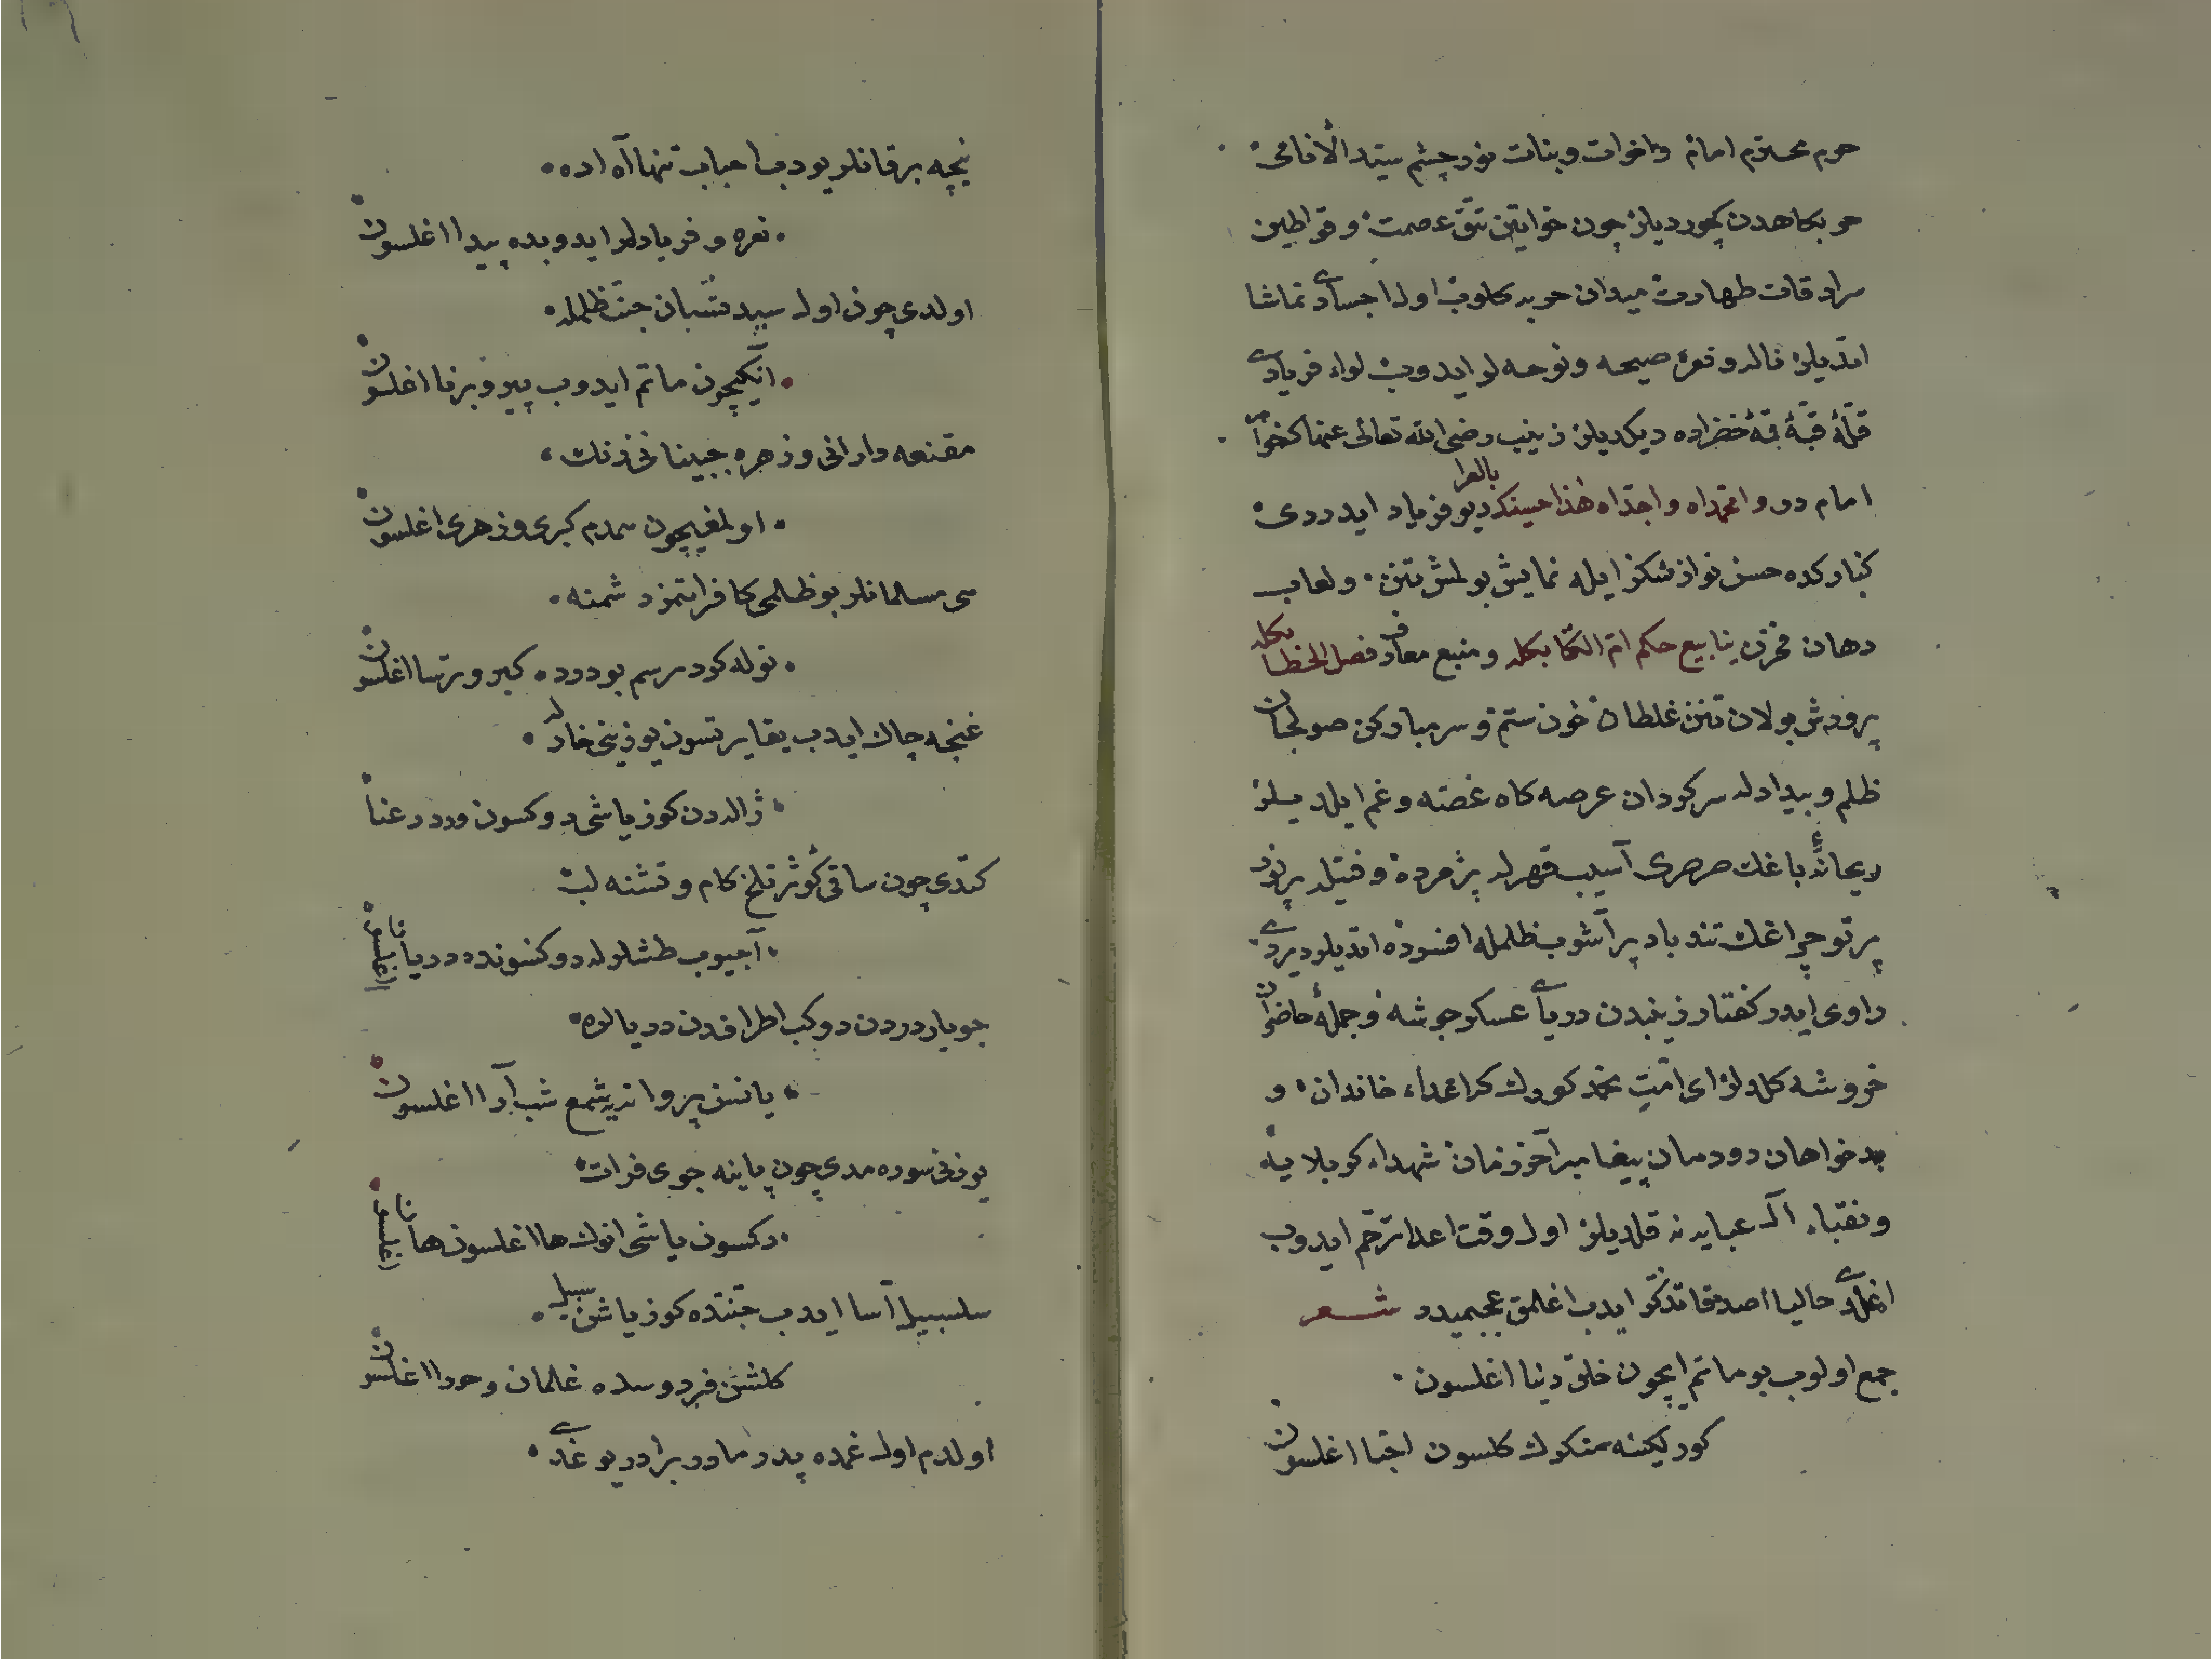 حرم محترم امام واخوات وبنات نور چشم سيّد الأنامى
حربكاهدن كچورديلر چون خواتين تتق عصمت وقواطين
سرادقات طهارت ميدان حربه كلوب اول اجسادى تماشا
اتديلر ناله ونعره صيحه ونوحه لر ايدوب لواء فريادى
قلّهٔ قبّهٔ خضراده ديكديلر زينب رضى الله تعالى عنها كه خواهر
امام در وا محمداه واجدّاه هذا حسينك بالعرا ديو فرياد ايدردى
كنارکده حسن نواز شكر ايله نمايش بولمش تنن ولعاب
دهان مخزن ينابيع حكم امّ الكتابكله ومنبع معارف فصل الخطابكله
پرورش بولان تنن غلطان خون ستم وسر مباركن صولجان
ظلم وبيدادله سركردان عرصه كاه غصّه وغم ايلديلر
ريحانهٔ باغك صرصرى آسيب قهرله پژمرده وفتيله پرنور
پرتو چراغك تندباد پر آشوب ظلمله افسرده اتديلر ديردى
راوى ايدر كفتار زينبدن درياى عسكر جوشه وجملهٔ حاضران
خروشه كلديلر اى امّت محمد كورك كه اعداء خاندان و
بدخواهان دودمان پيغامبر آخر زمان شهداء كربلايه
ونقباء آل عبايه نه قلديلر اول وقت اعدا ترحّم ايدوب
اغلدى حاليا اصدقا تذكّر ايدب اغلمق عجبميدر شعر
جمع اولوب بو ماتم ايچون خلق دنيا اغلسون
كور يكسنه كلسون احبّا اغلسون
نيچه بر قانلر يودب احباب تنها آه ايده
نعره وفريادلر ايدوبده پيدا اغلسون
اولدى چون اول سيد شبان جنّت ظلمله
آنكيچون ماتم ايدوب پير وبرنا اغلسون
مقنعه دارانى وزهره جبينانى زنك
اولمغيچون همدم كبرى وزهرى اغلسون
مسلمانلر بو ظلمى كافر اتمز دشمنه
نوله كورسم بو دورده كبر وترسا اغلسون
غنچه چاك ايدب يقا يرتسون يوزينى خارله
ژاله دن كوز ياشى دوكسون ورد رعنا
كتدى چون ساقى كوثر تلخ كام وتشنه لب
آجيوب طشلرله دوكنسونده دريا اغلسون
جويبار دردن دوكب اطرافدن دريالره
يانسن پروانه شمع شب آرا اغلسون
يوزنى سوره مدى چون پاينه جوى فرات
دكسون ياشى انوك ها اغلسون ها اغلسون
سلسبيل آسا ايدب جنّتده كوز ياشن سبيل
كلشن فردوسده غلمان وحورا اغلسون
اولدم اول غمده پدر مادر برادر يوغدى